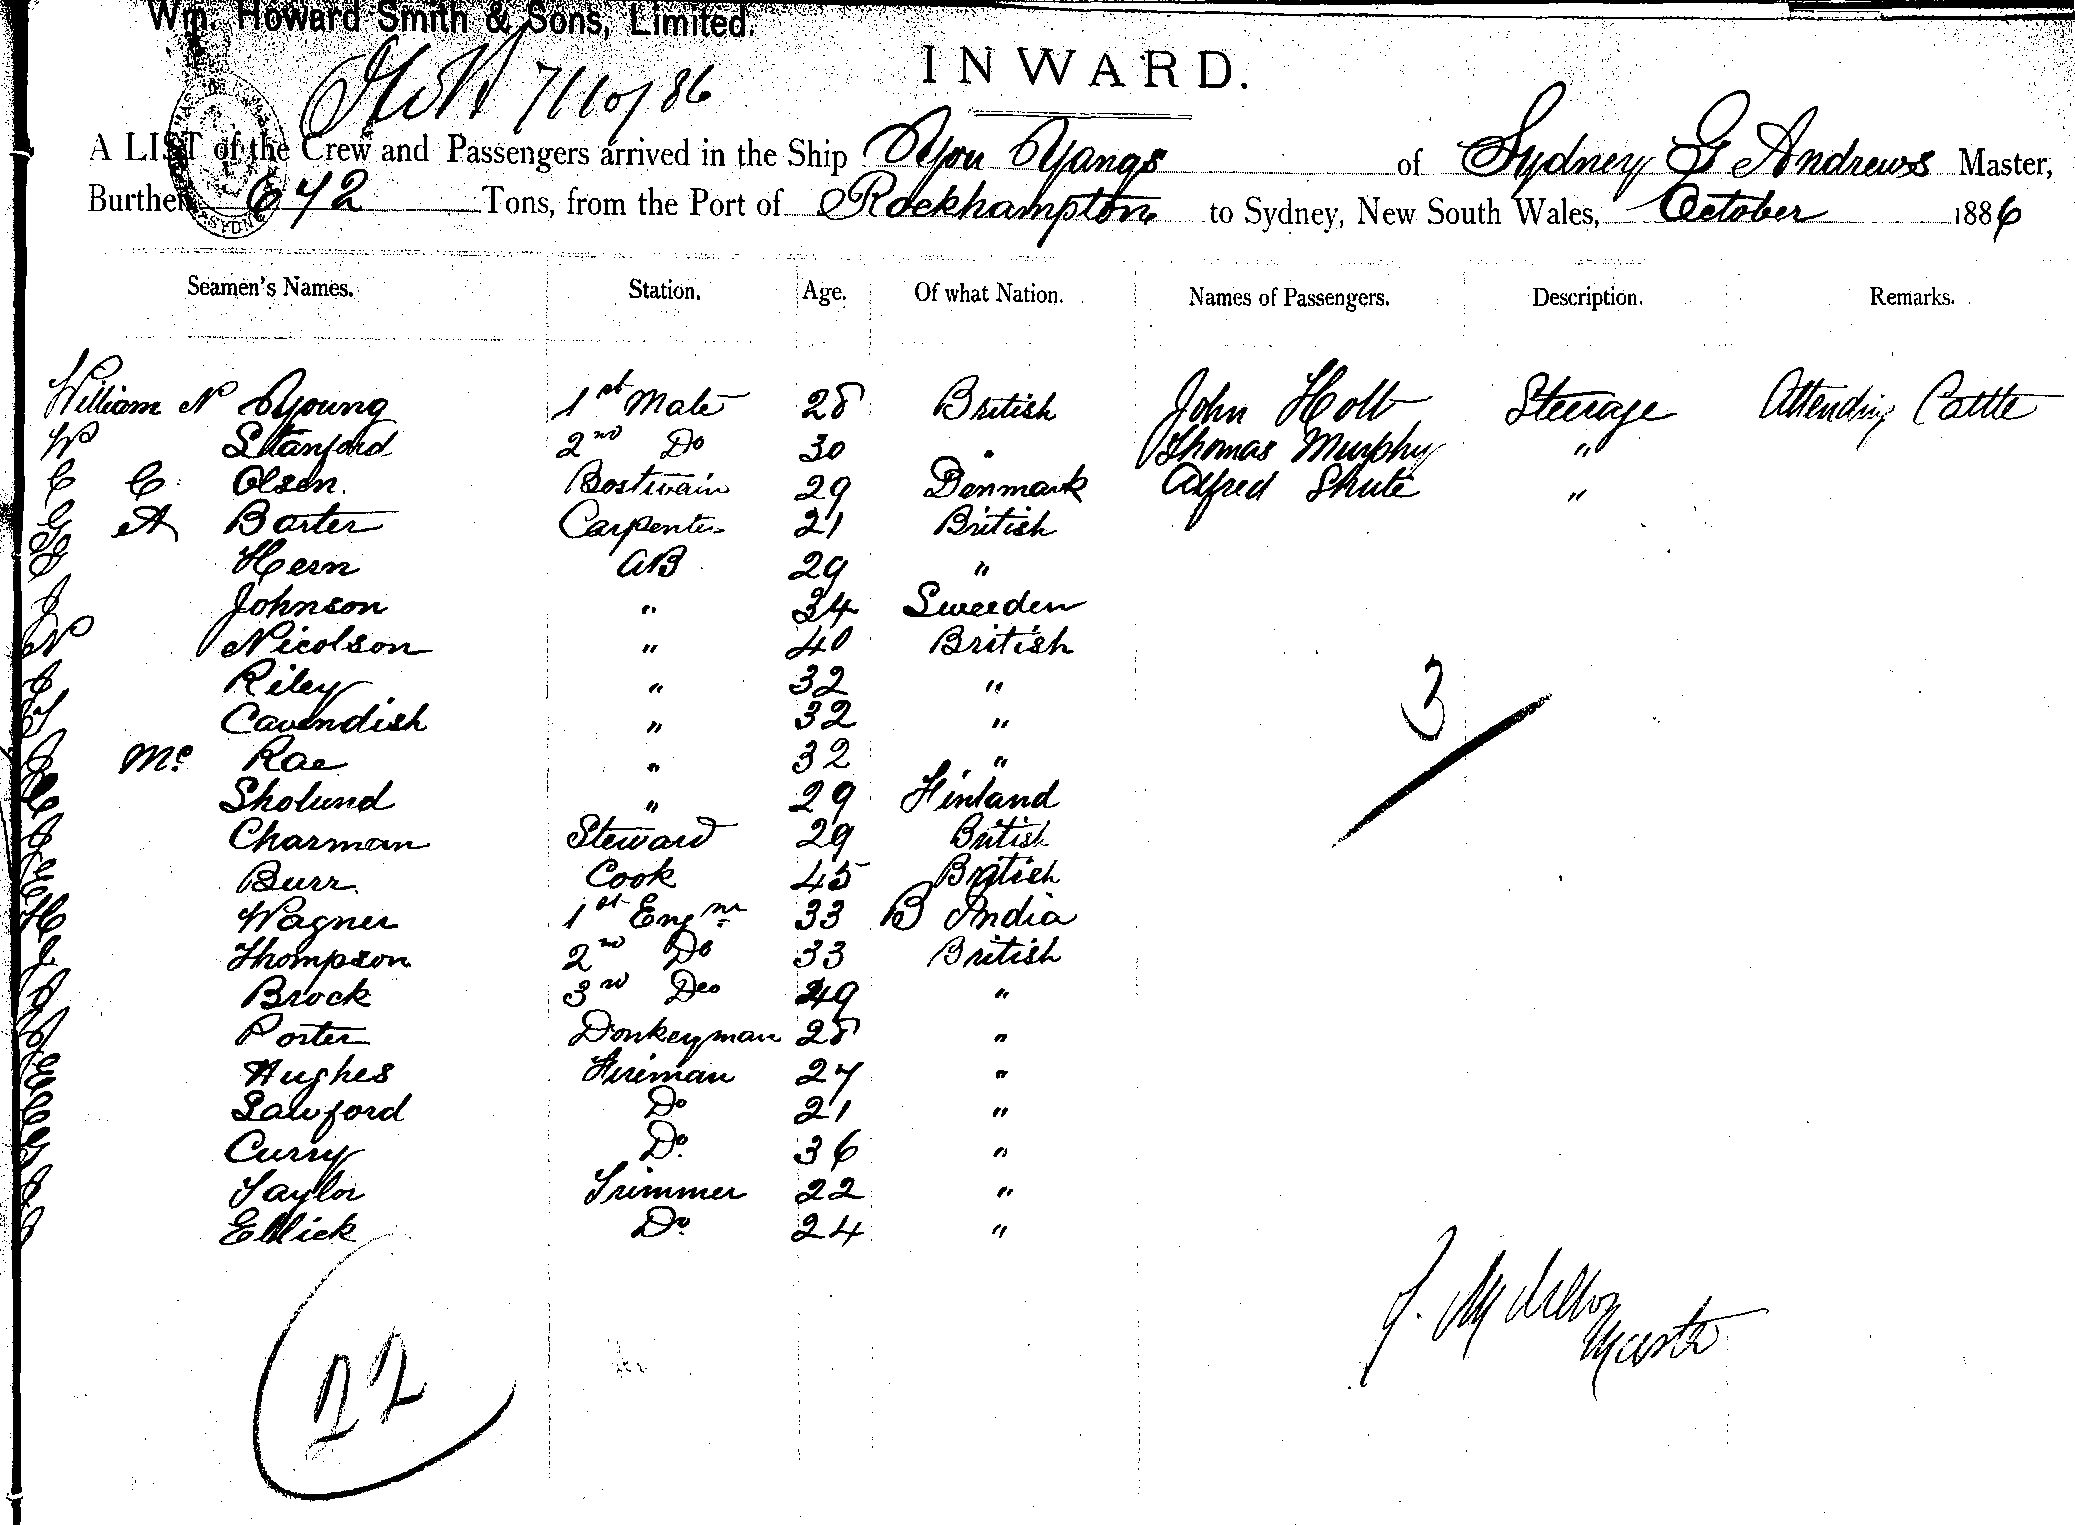 Wm. Howard Smith & Sons, Limited.
INWARD.
7/10/86
A LIST of the Crew and Passengers arrived in the Ship You Yangs of Sydney G Andrews Master,
Burthen 642 Tons, from the Port of Rockhampton to Sydney, New South Wales, October 1886
Seamen's Names. Station. Age. Of what Nation. Names of Passengers. Description. Remarks.
William N Young 1st Mate 28 British John Holt Steerage Attending Cattle
W Stanford 2nd Do 30 " Thomas Murphy "
C C Olsen. Bostwain 29 Denmark Alfred Shute "
G A Barter Carpenter 21 British
G Hern AB 29 "
J Johnson " 34 Sweeden
N Nicolson " 40 British
J Riley " 32 "
T Cavendish " 32 "
Mc Rae " 32 "
Sholund " 29 Finland
Charman Steward 29 British
Burr Cook 45 British
H Wagner 1st Engnr 33 B India
J Thompson 2nd Do 33 British
Brock 3rd Do 49 "
Porter Donkeyman 28 "
Hughes Fireman 27 "
Lawford Do 21 "
Curry Do. 36 "
Taylor Trimmer 22 "
Ellick Do. 24 "
3
22
Master